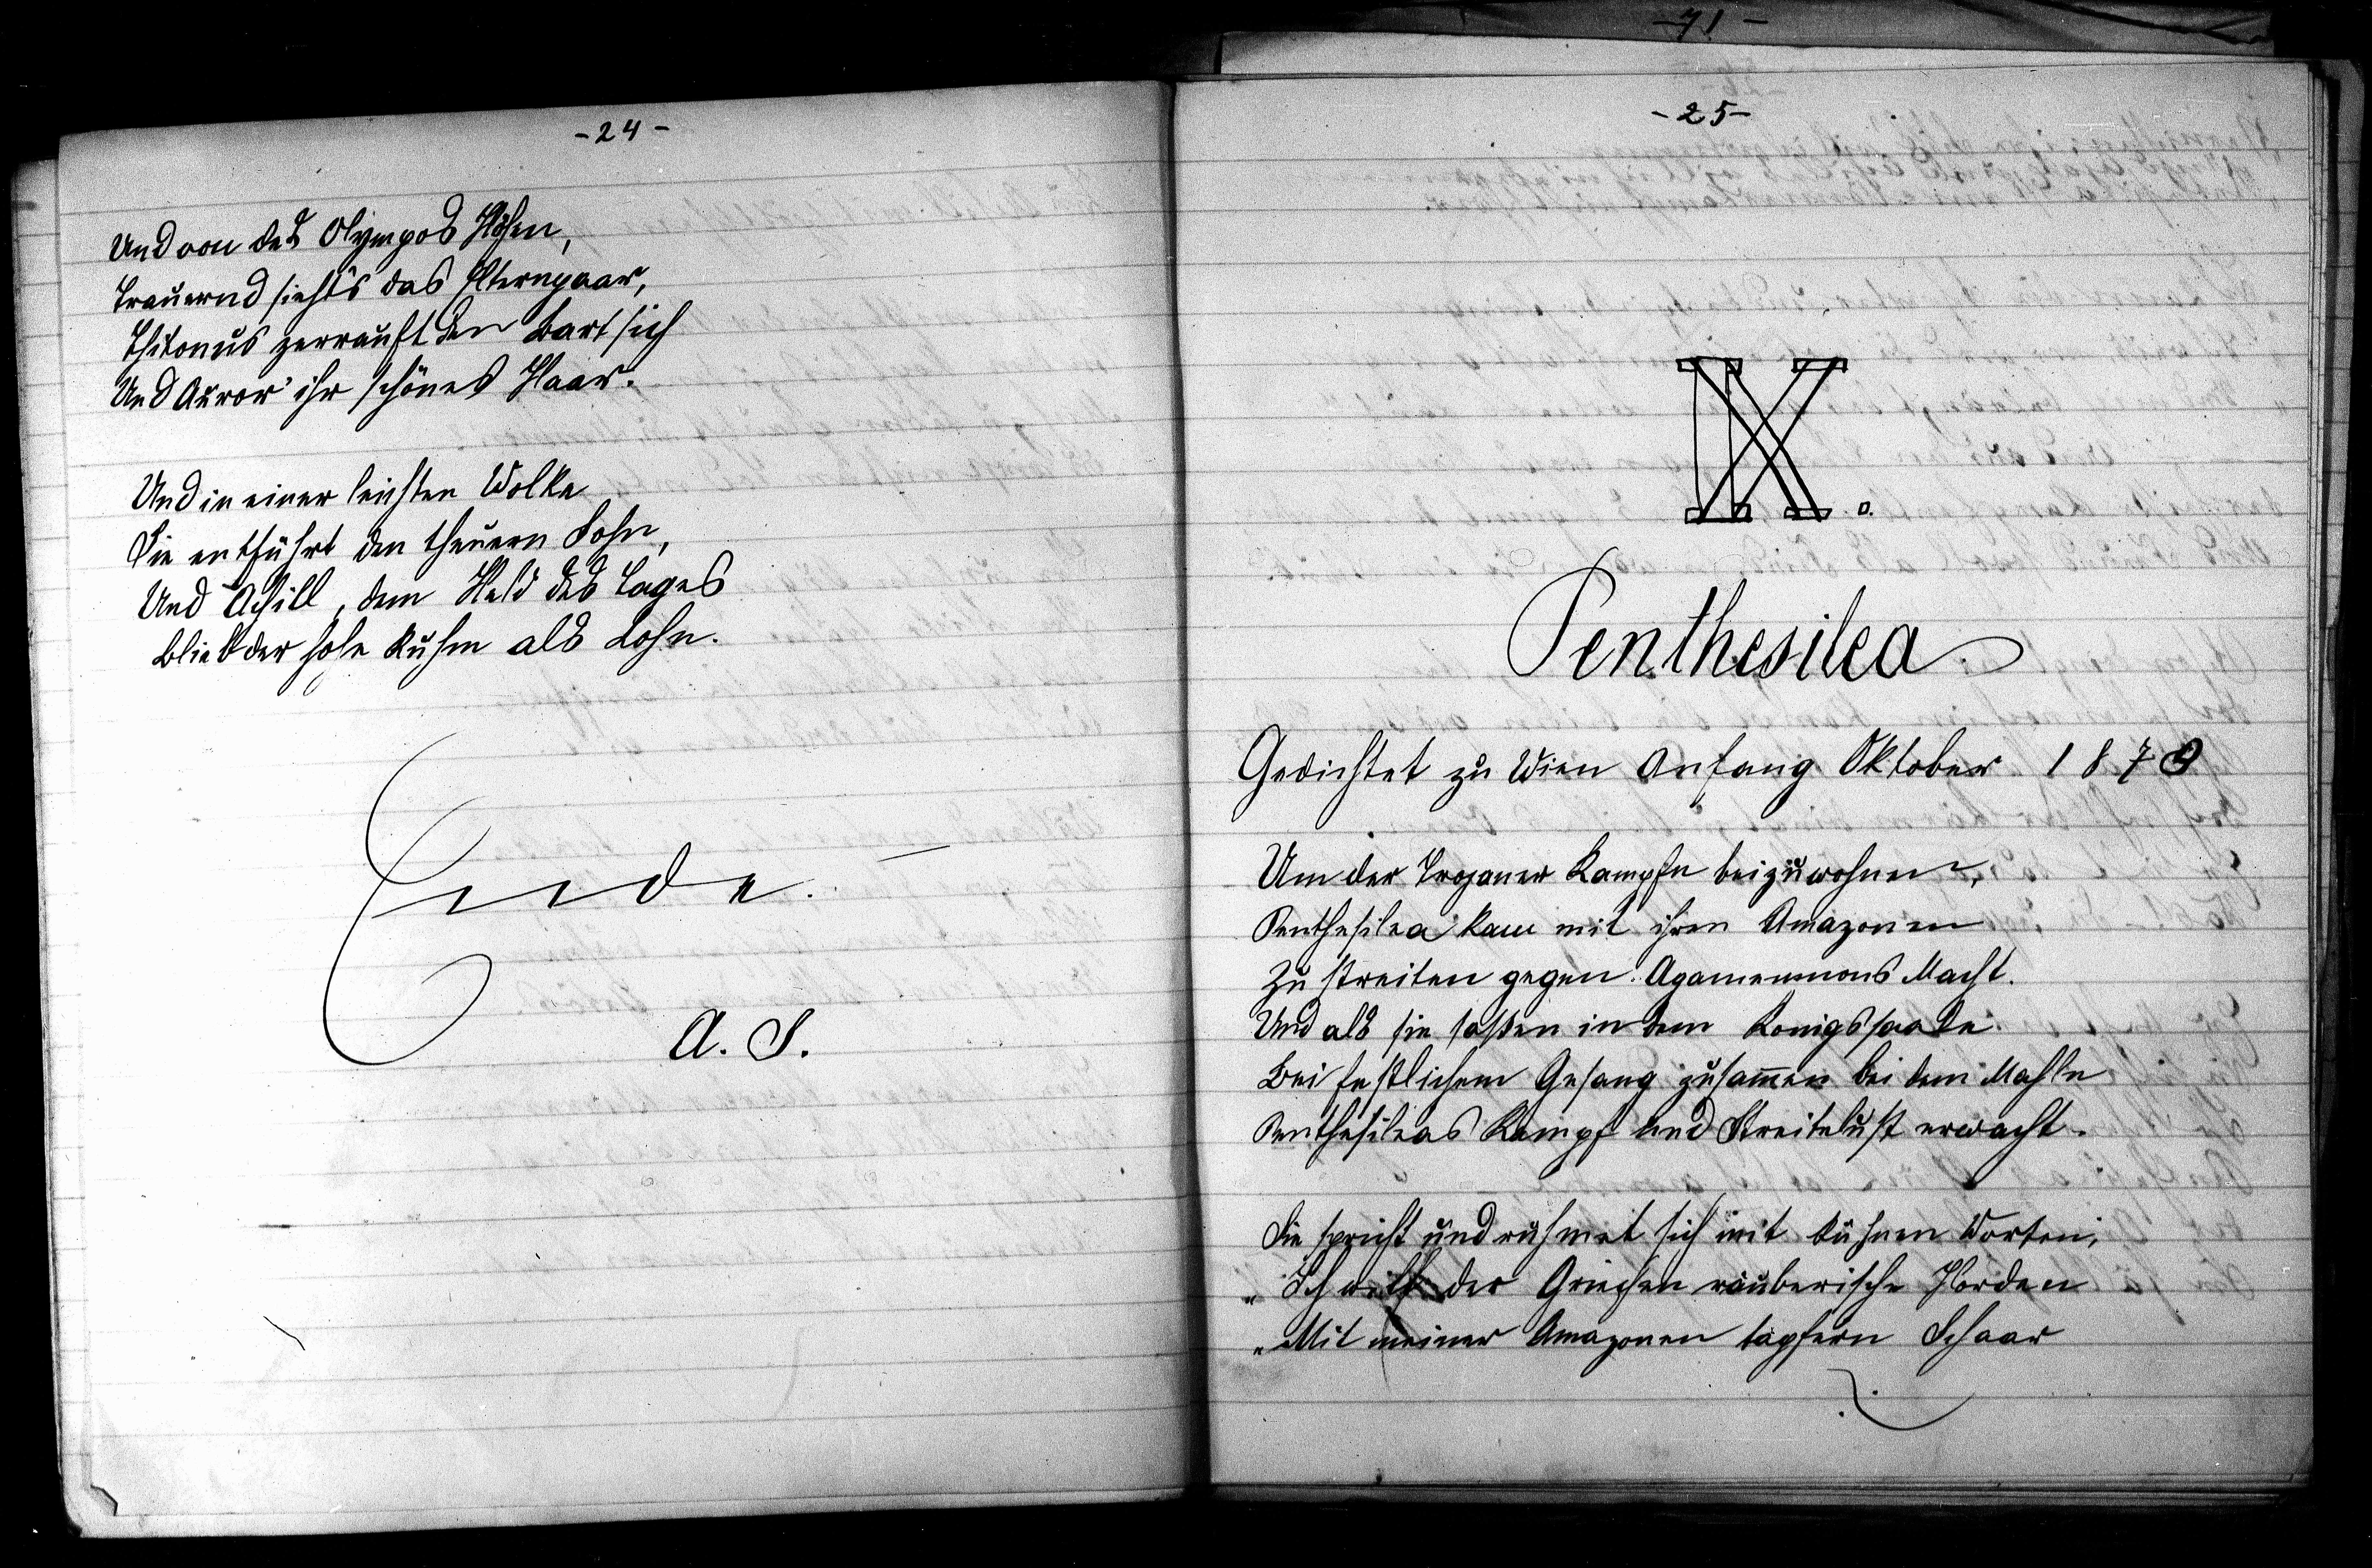 -24-
Und von des Olympos Höhen,
Trauernd sieht's das Elternpaar,
Thitonus zerrauft den Bart sich
Und Auror' ihr schönes Haar.
Und in einer leichten Wolke
Sie entführt den theuern Sohn,
Und Achill, dem Held des Tages
Blieb der hohe Ruhm als Lohn.
Ende.
A. S.
-71-
-25-
IX.
Penthesilea
Gedichtet zu Wien Anfang Oktober 1873
Um der Trojaner Kampfe beizuwohnen,
Penthesilea kam mit ihren Amazonen
Zu streiten gegen Agamemnons Macht.
Und als sie saßen in dem Konigssaale
Bei festlichem Gesang zusam̄en bei dem Mahle
Penthesileas Kampf und Streitelust erwacht.
Sie spricht und rühmet sich mit kühnen Worten;
„Ich will der Griechen räuberische Horden
„Mit meiner Amazonen tapfern Schaar